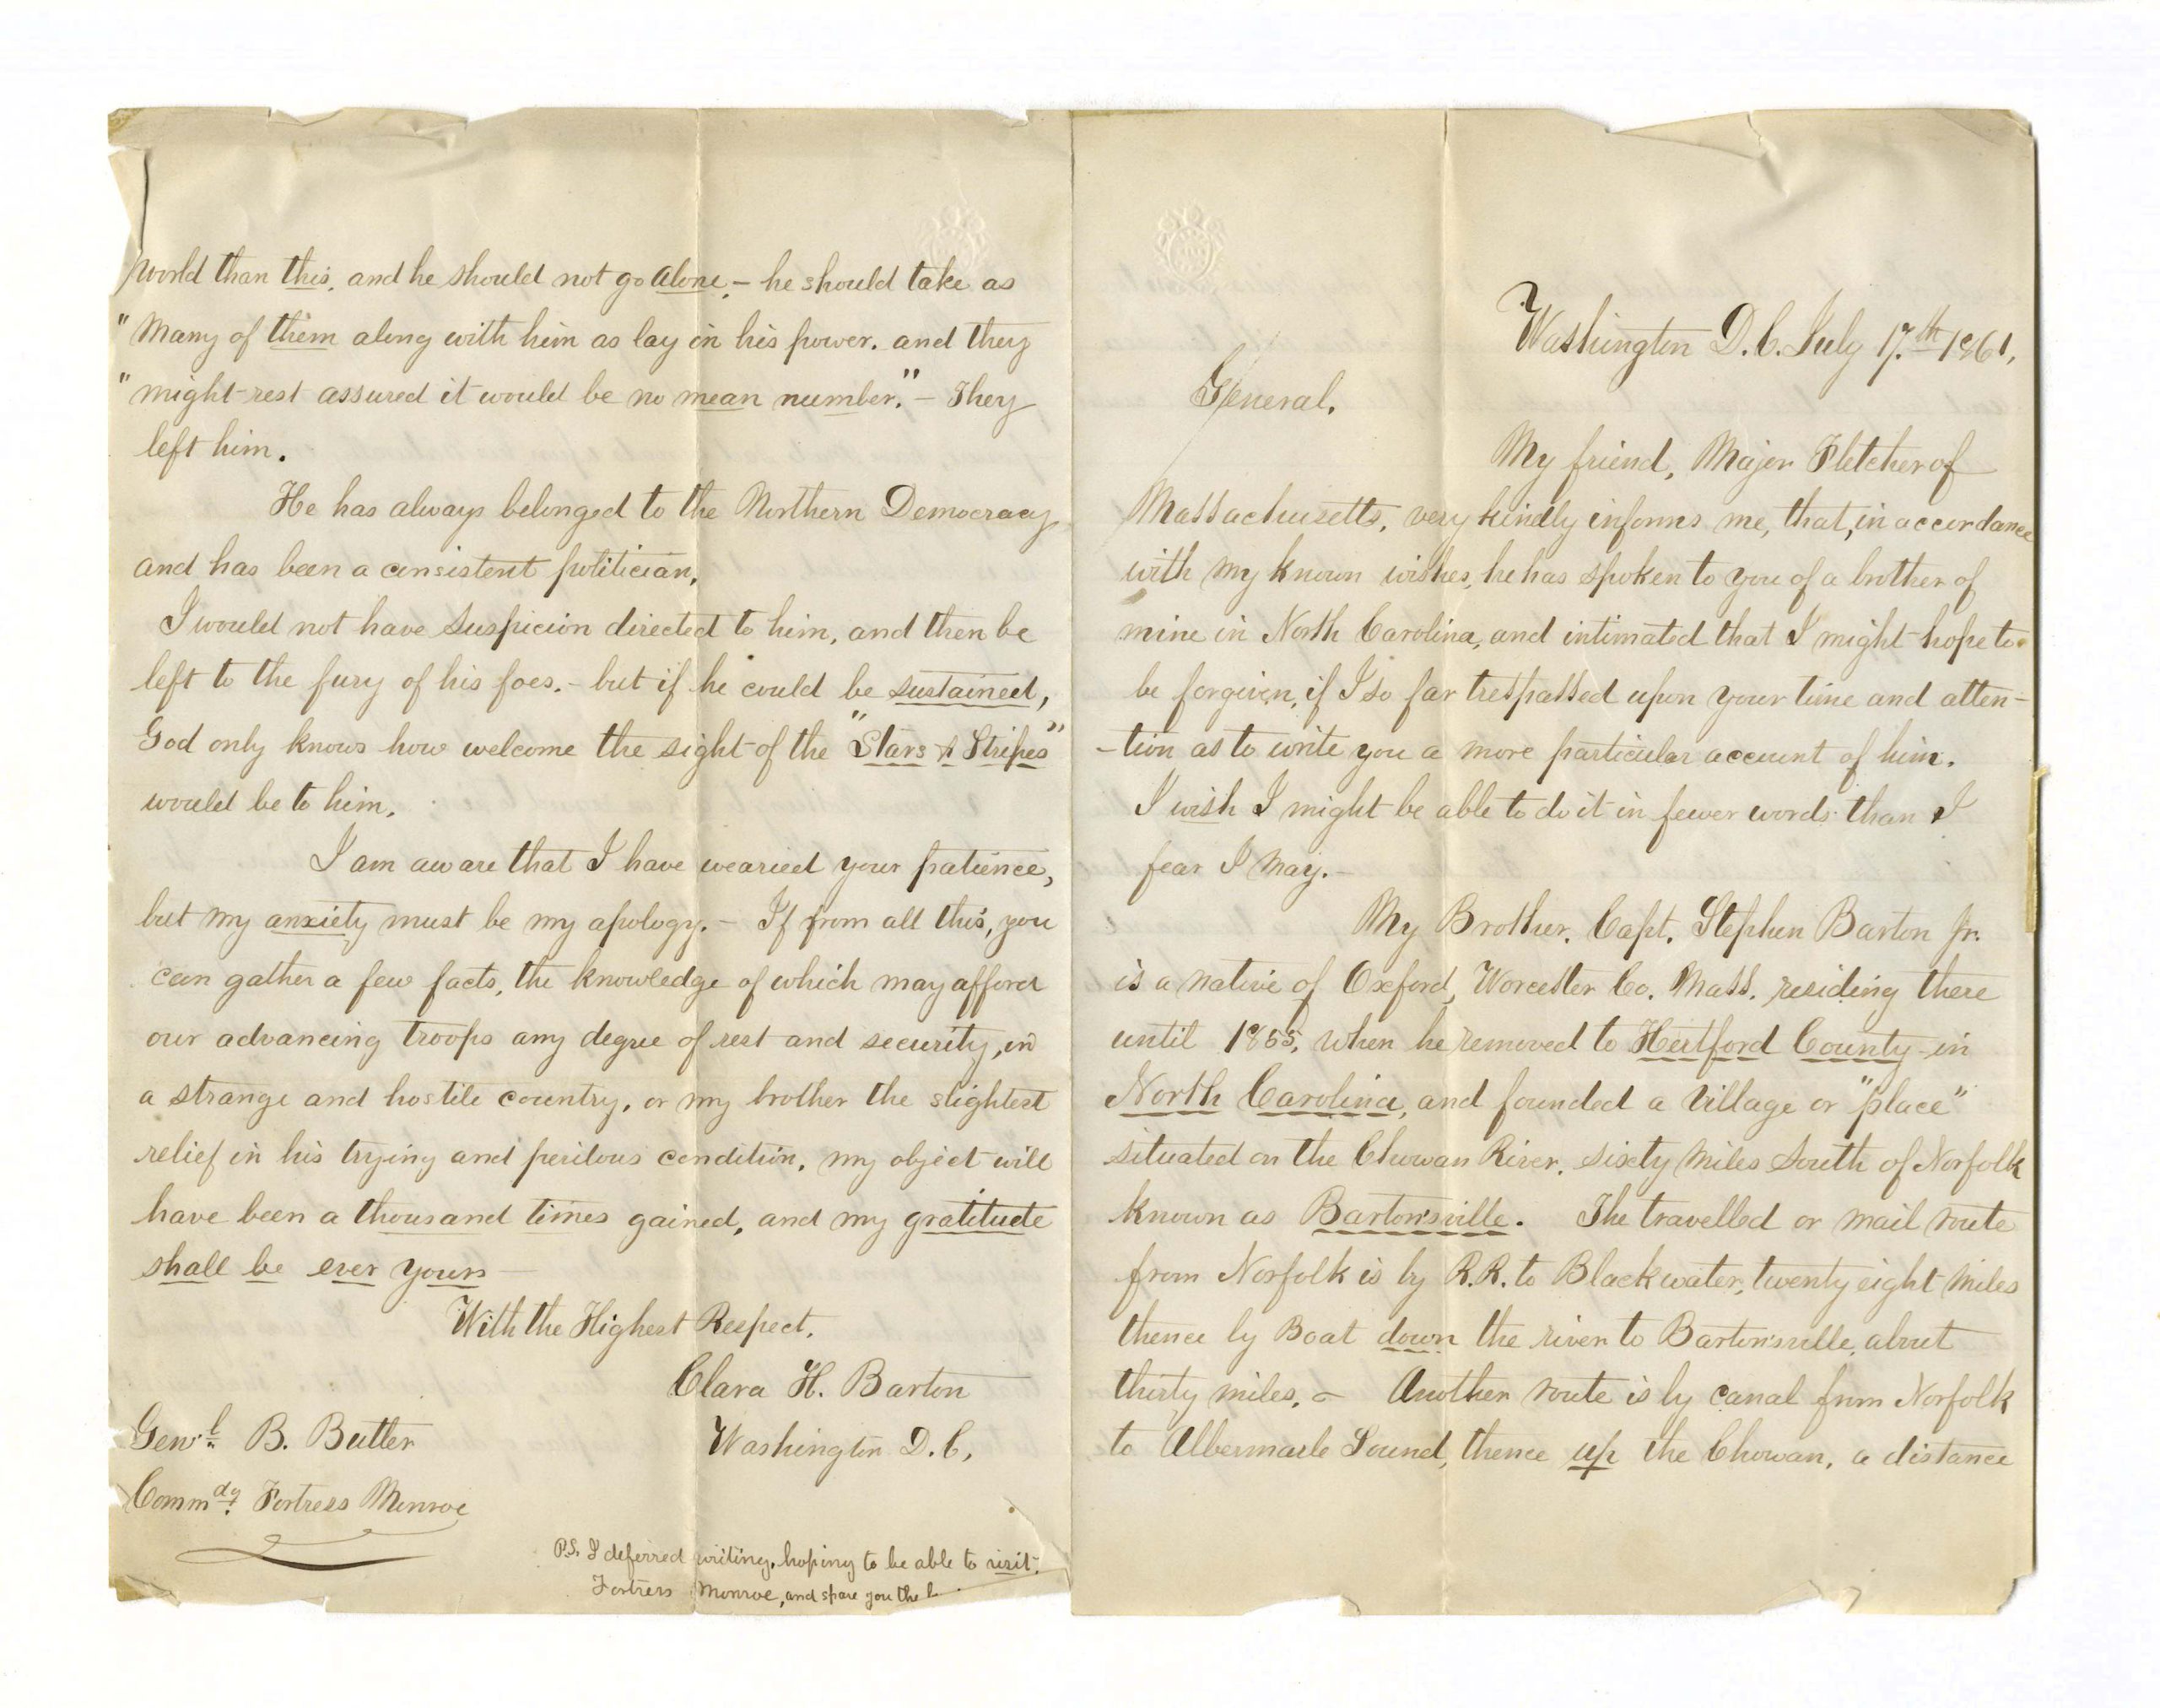 Washington D.C. July 17.th 1861,
General.
My friend, Major Fletcher of
Massachusetts, very kindly informs me, that, in accordance
with my known wishes, he has spoken to you of a brother of
mine in North Carolina, and intimated that I might hope to
be forgiven, if I so far trespassed upon your time and atten-
-tion as to write you a more particular account of him.
I wish I might be able to do it in fewer words than I
fear I may. -
My Brother. Capt. Stephen Barton Jr.
is a native of Oxford, Worcester Co. Mass. residing there
until 1855, when he removed to Hertford County in
North Carolina, and founded a village or "place"
situated on the Chowan River, sixty miles South of Norfolk
known as Barton'sville. The travelled or mail route
from Norfolk is by R.R. to Blackwater, twenty eight miles
thence by Boat down the river to Barton'sville, about
thirty miles. - Another route is by canal from Norfolk
to Albermarle Sound, thence up the Chowan, a distance
world than this, and he should not go alone, - he should take as
" many of them along with him as lay in his power. and they
" might rest assured it would be no mean number." - They
left him.
He has always belonged to the Northern Democracy
and has been a consistent politician.
I would not have suspicion directed to him, and then be
left to the fury of his foes. - but if he could be sustained,
God only knows how welcome the sight of the "Stars & Stripes"
would be to him.
I am aware that I have wearied your patience,
but my anxiety must be my apology. - If from all this, you
can gather a few facts, the knowledge of which may afford
our advancing troops any degree of rest and security, in
a strange and hostile country, or my brother the slightest
relief in his trying and perilous condition, my object will
have been a thousand times gained, and my gratitude
shall be ever yours -
With the Highest Respect.
Clara H. Barton
Washington D.C.
Genl. B. Butler
Commdg. Fortress Monroe
P.S. I deferred writing, hoping to be able to visit
Fortress Monroe, and spare you the